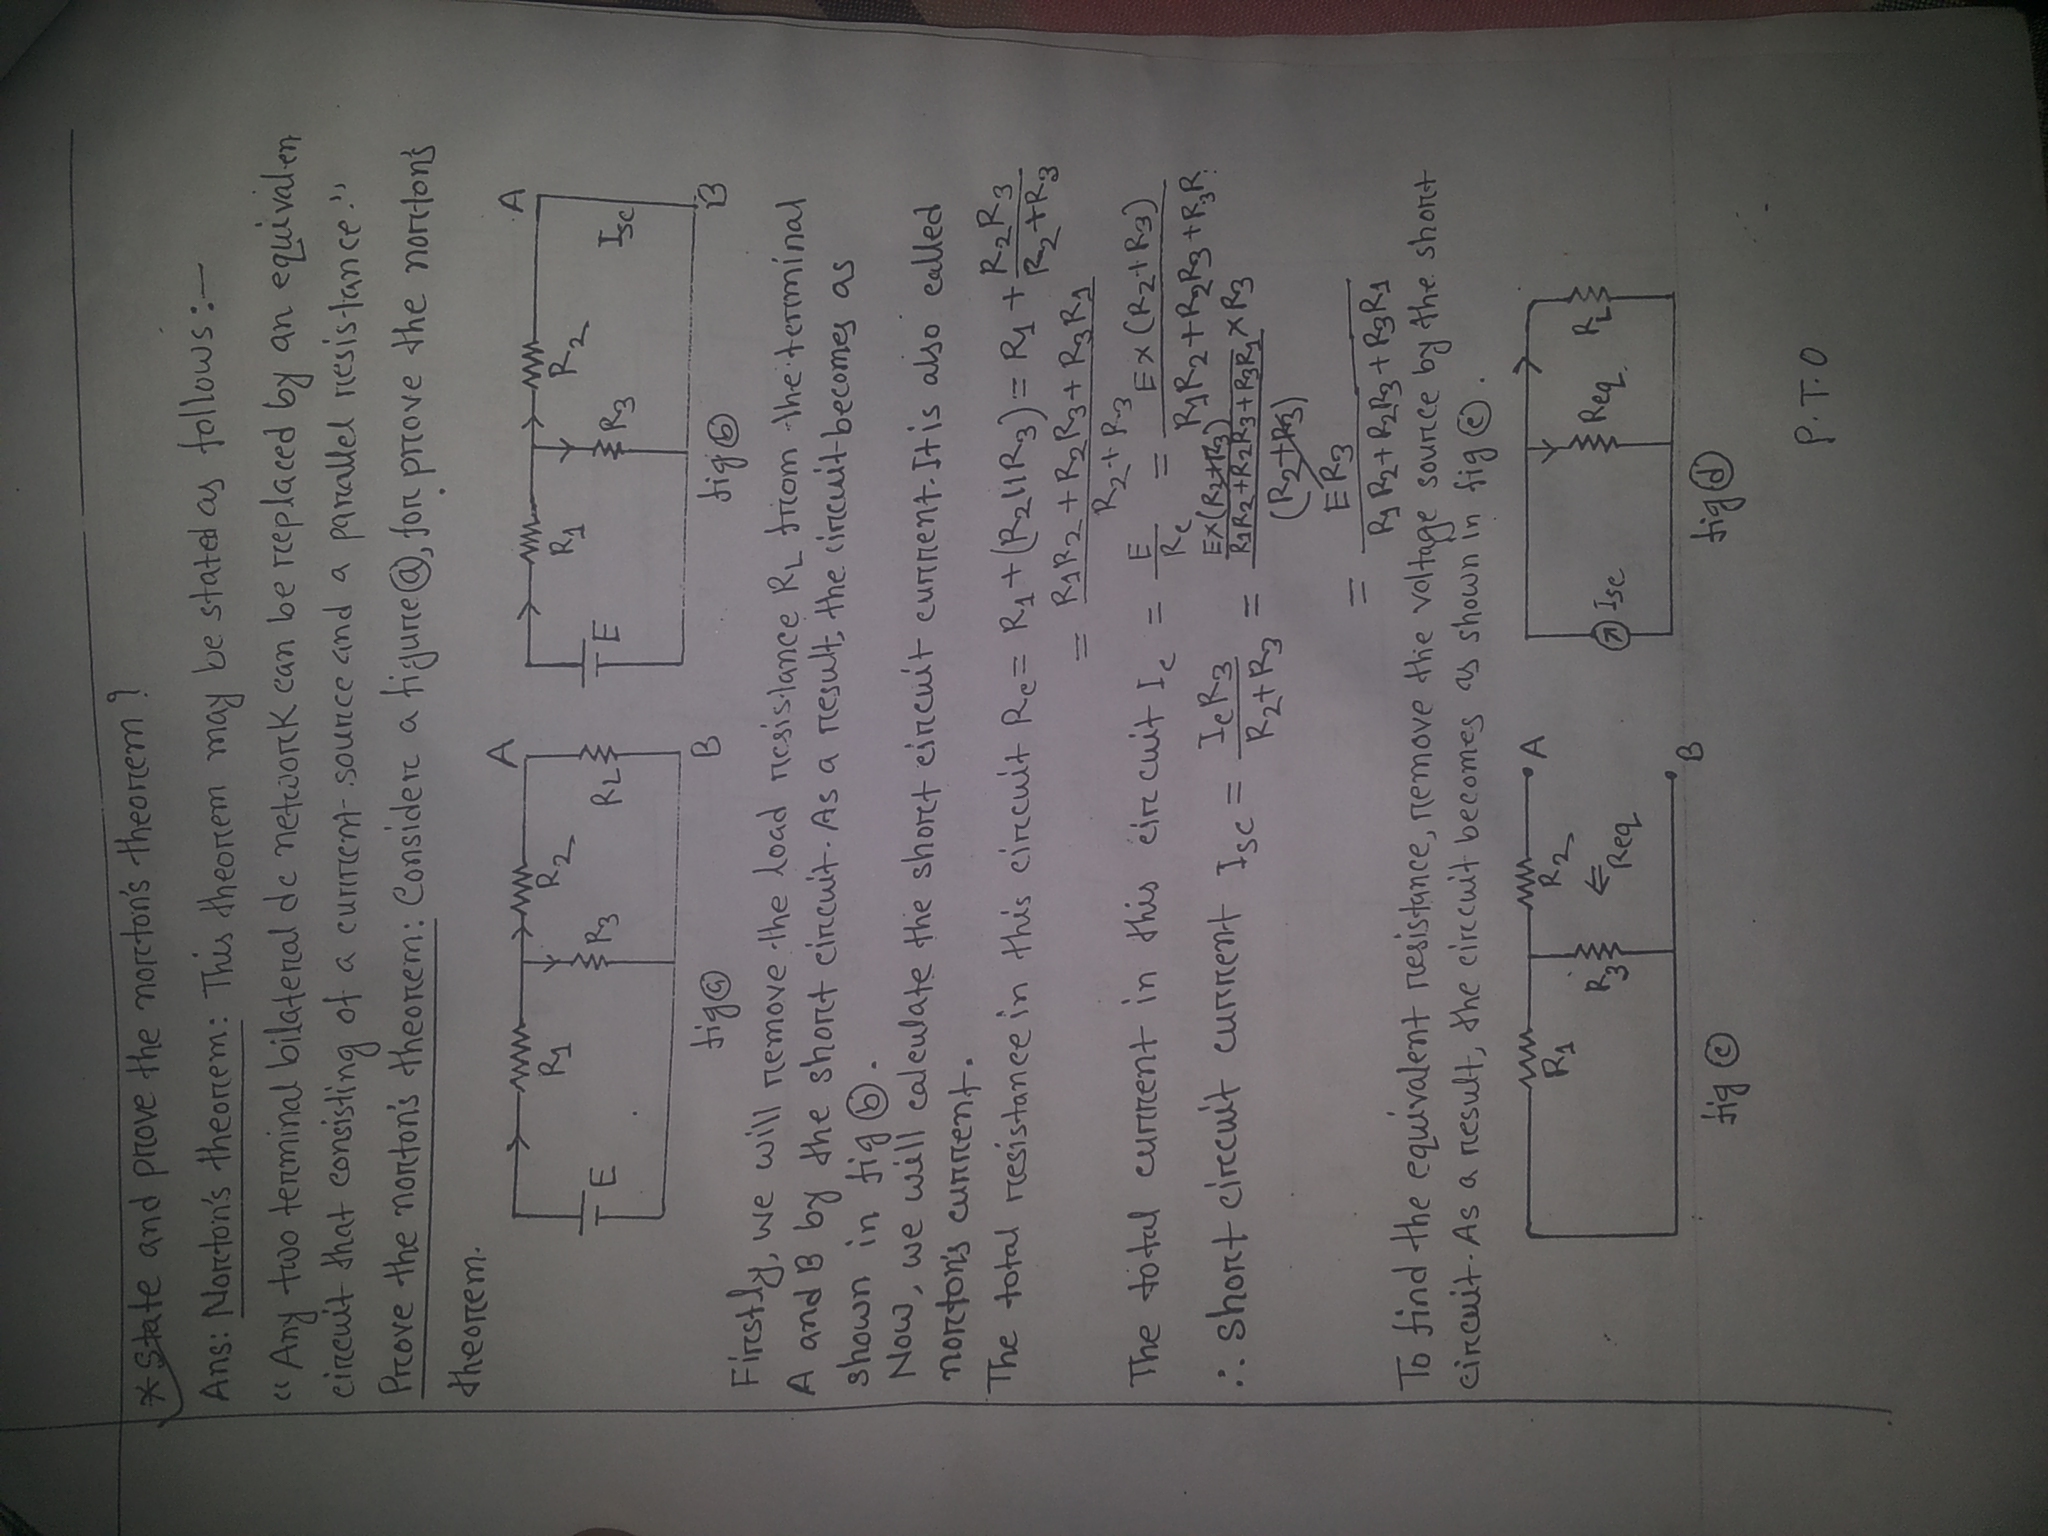 * State and prove the norton's theorem ?
Ans: Norton's theorem: This theorem may be stated as follows:—
"Any two terminal bilateral dc network can be replaced by an equivalen
circuit that consisting of a current source and a parallel resistance."
Prove the norton's theorem: Consider a figure ⓐ, for prove the norton's
theorem.
A A
R1 R2 R1 R2
E R3 RL E R3 Isc
fig ⓐ B fig ⓑ B
Firstly, we will remove the load resistance RL from the terminal
A and B by the short circuit. As a result, the circuit becomes as
shown in fig ⓑ.
Now, we will calculate the short circuit current. It is also called
norton's current.
The total resistance in this circuit Rc = R1 + (R2 || R3) = R1 + R2R3 / R2+R3
= R1R2 + R2R3 + R3R1 / R2 + R3
The total current in this circuit Ic = E / Rc = E×(R2+R3) / R1R2+R2R3+R3R
∴ short circuit current Isc = IcR3 / R2+R3 = E×(R2+R3) / R1R2+R2R3+R3R1 × R3 / (R2+R3)
= ER3 / R1R2+R2R3+R3R1
To find the equivalent resistance, remove the voltage source by the short
circuit. As a result, the circuit becomes as shown in fig ⓒ.
R1 R2 A
R3 Req Isc Req RL
B
fig ⓒ fig ⓓ
P.T.O